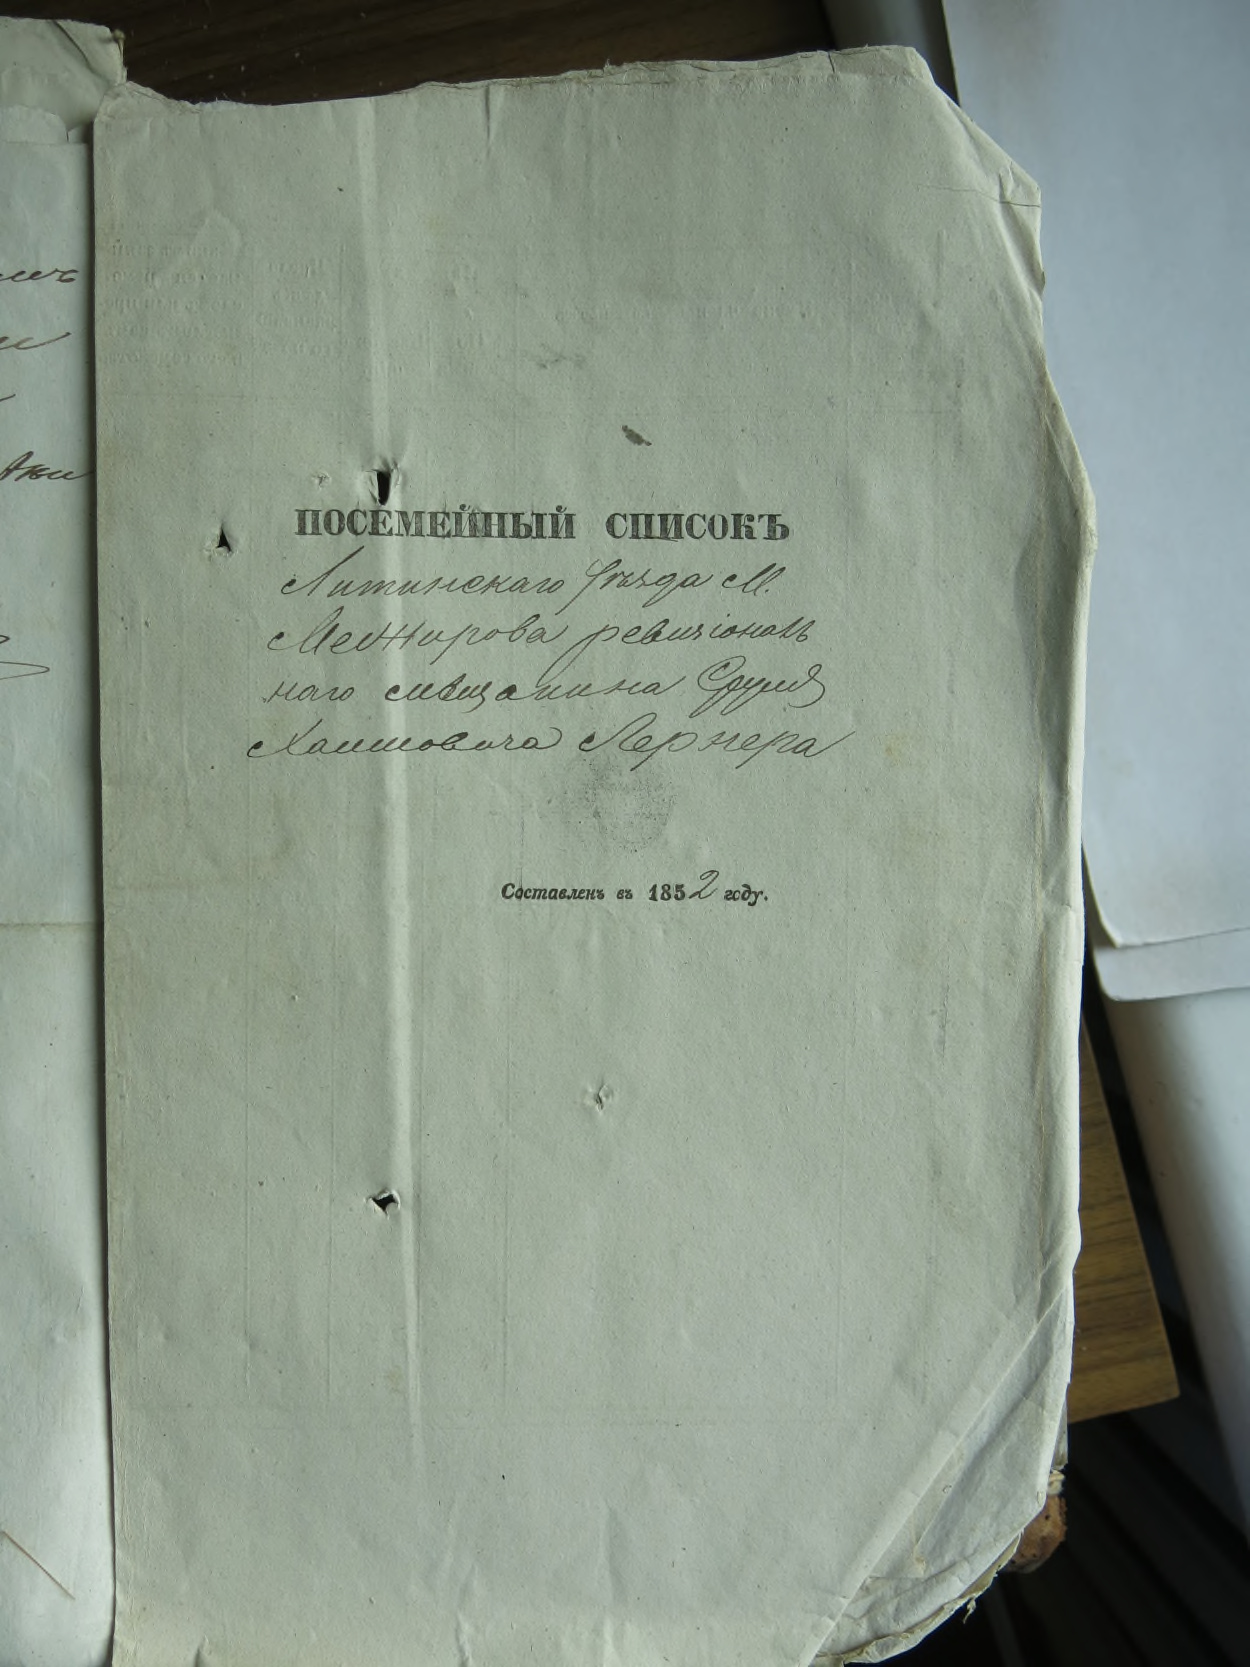 ПОСЕМЕЙНЫЙ СПИСОКЪ
Литинскаго уѣзда М.
Межирова ревизіональ
наго мѣщанина Сруля
Хаимовича Лернера
Составленъ въ 1852 году.